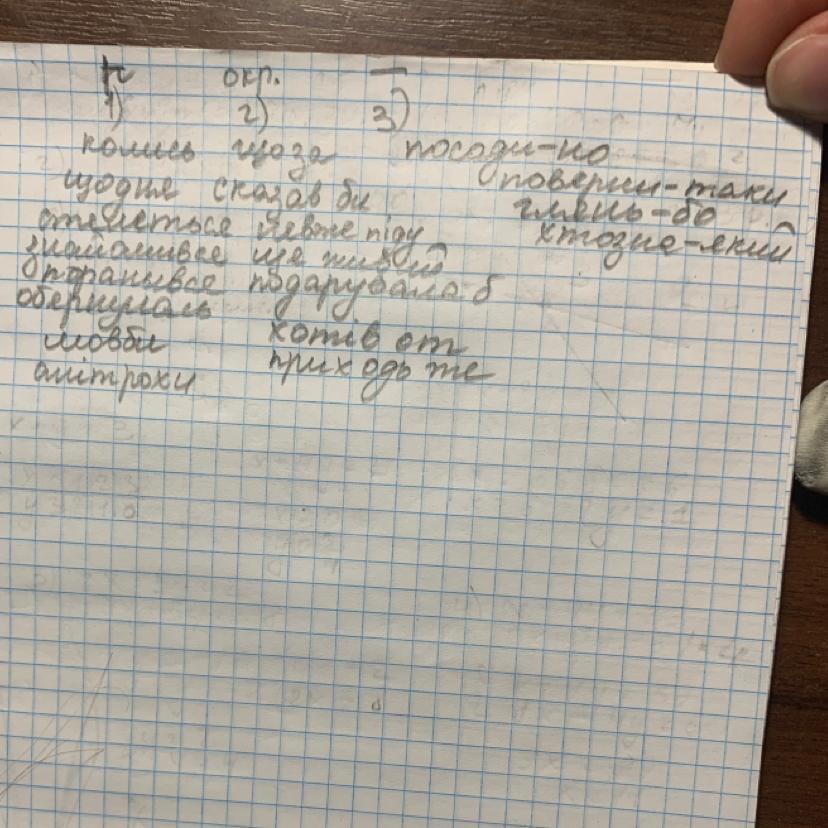 окр. —
1) 2) 3)
колись що за посоди-но
щодня сказав би поверни-таки
стелеться невже піду глянь-бо
знайомився ще живий хтозна-який
поранився подарувала б
обернулась
мовби хотів от
анітрохи приходь же